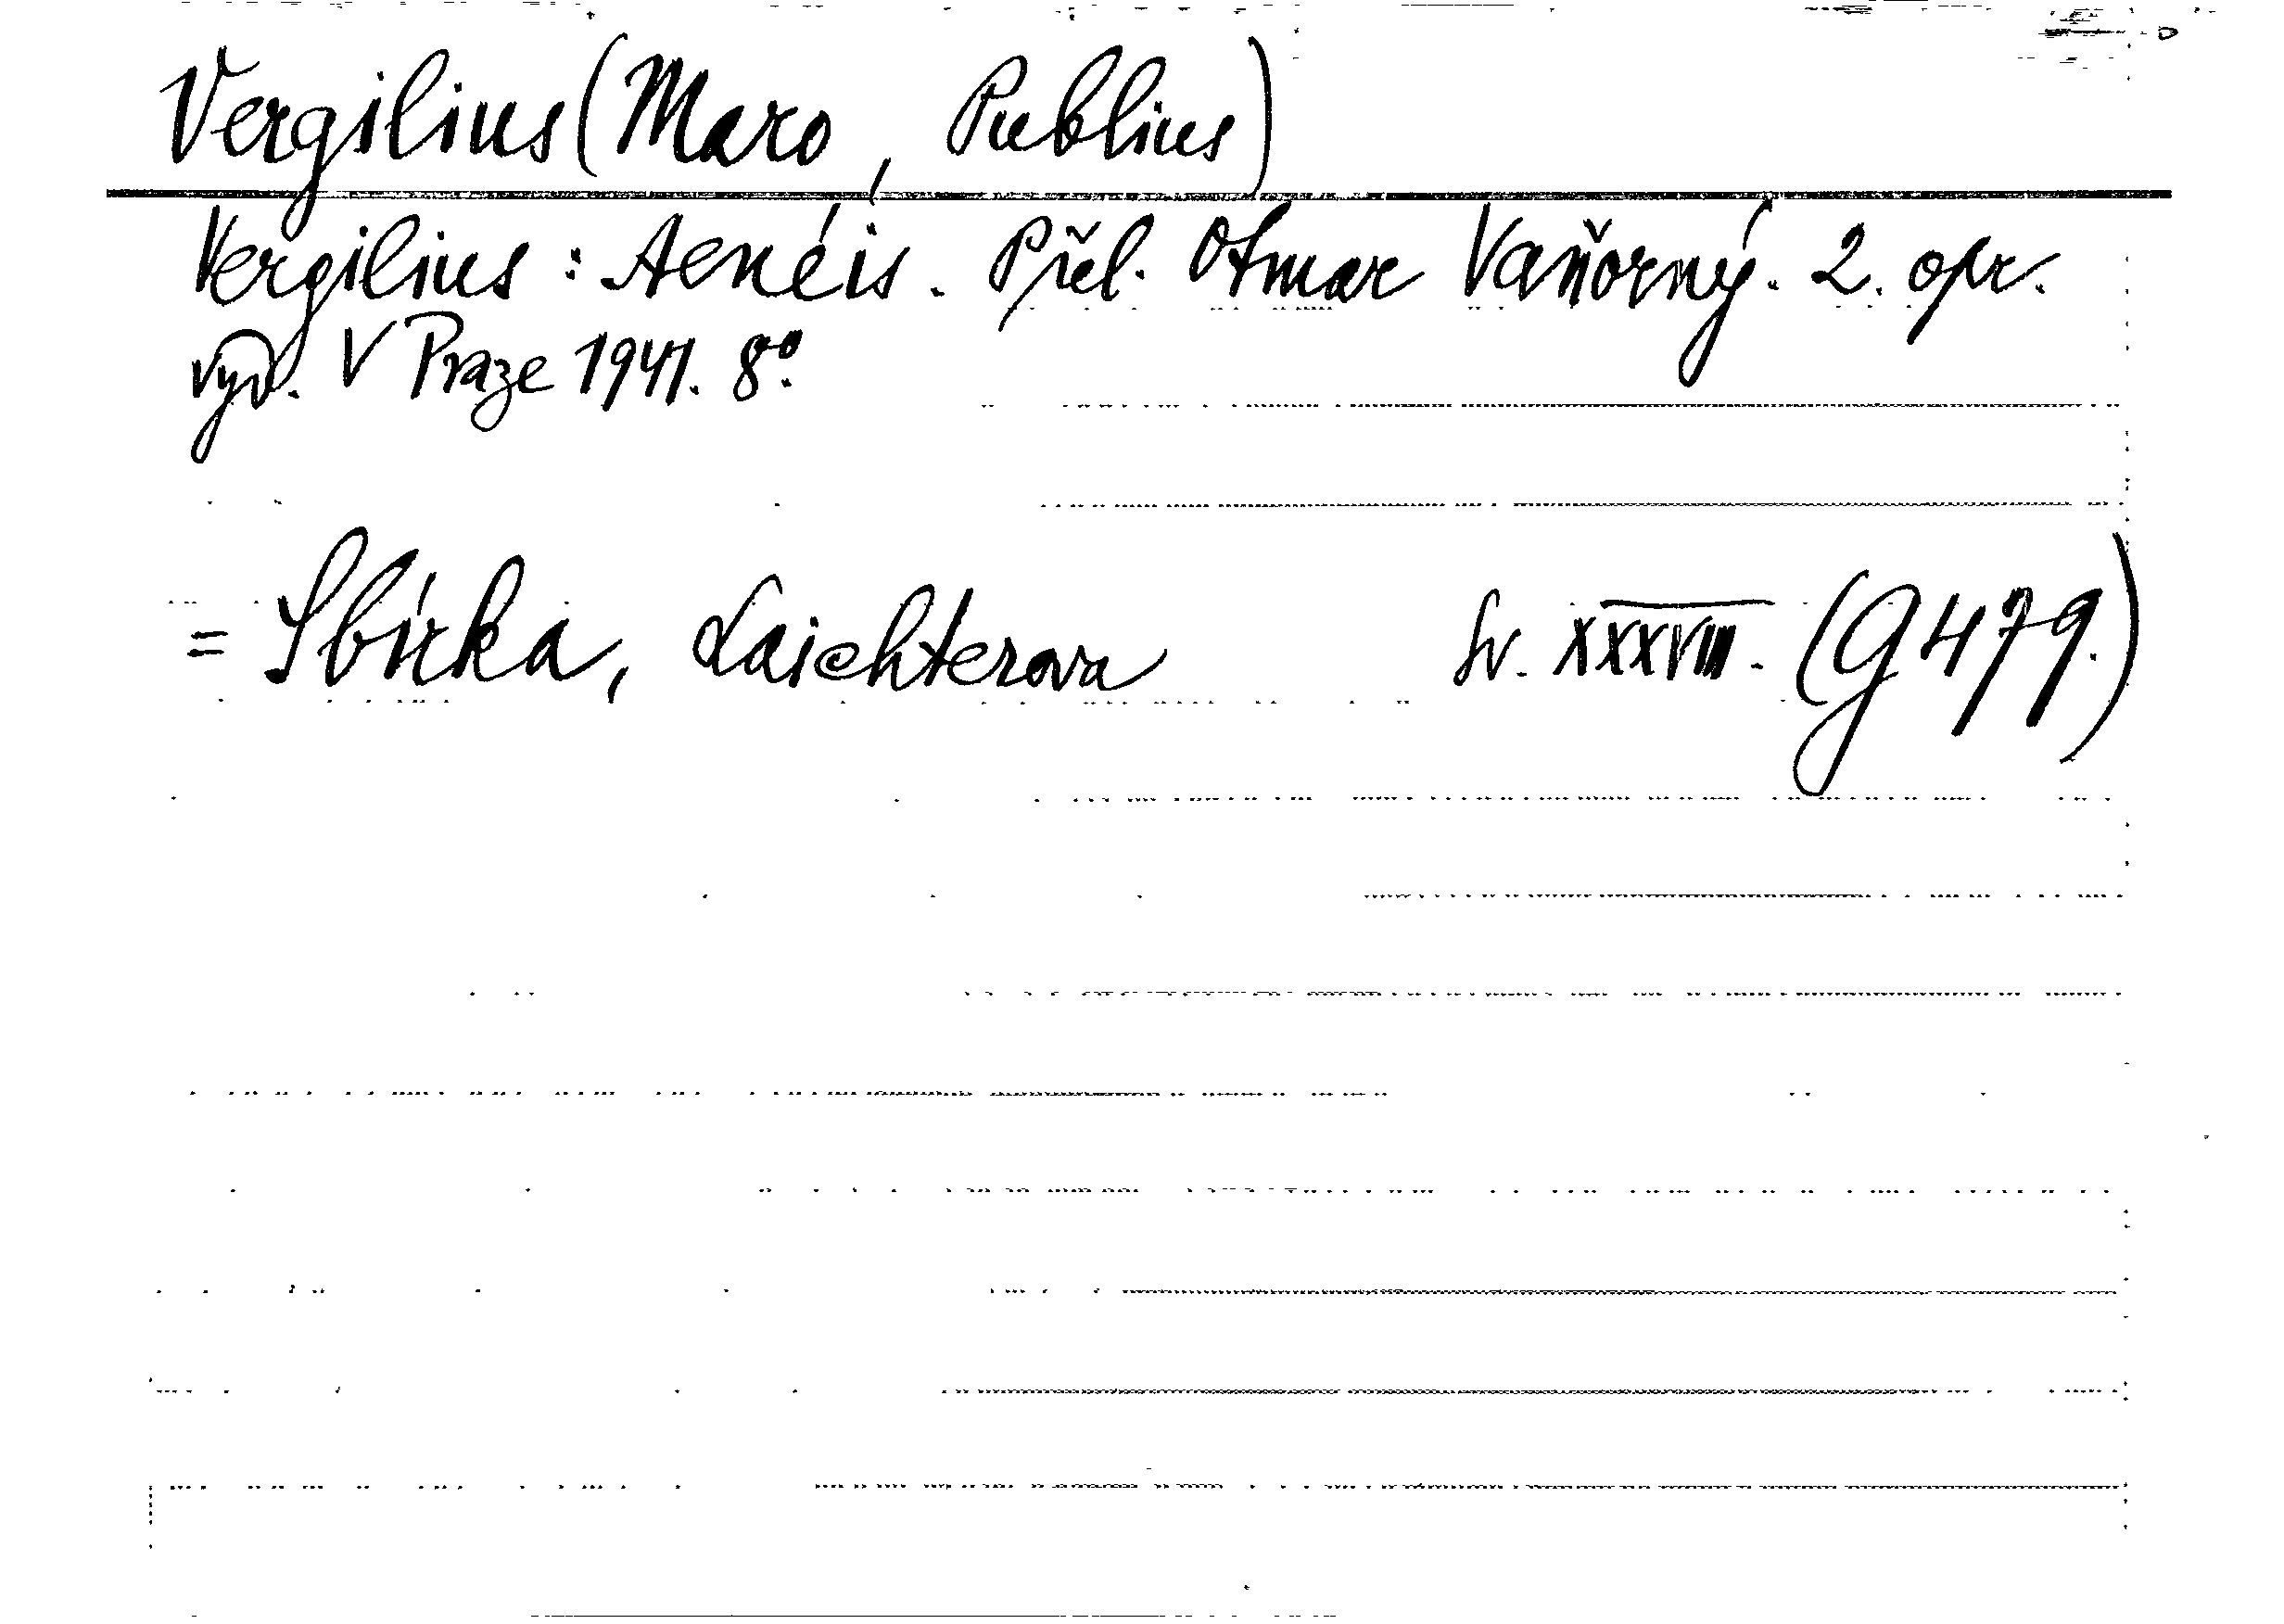 Vergilius (Maro, Publius)
Vergilius: Aenéis. Přel. Otmar Vaňorný. 2. opr.
vyd. V Praze 1941. 8°.
= Sbírka, Laichterova Sv. XXXVIII. (G 479.)